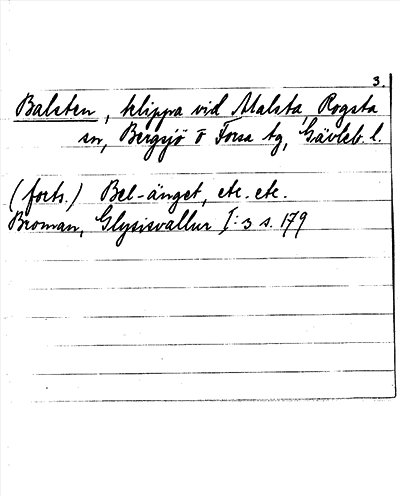 3.
Balsten, klippa vid Malsta, Rogsta
sn, Bergsjö o Forsa tg, Gävleb. l.
(forts.) Bel-änget, etc. etc.
Broman, Glysisvallur I: 3 s. 179